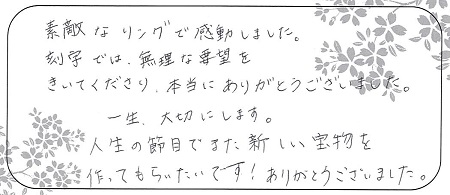 素敵なリングで感動しました。
刻字では、無理な要望を
きいてくださり、本当にありがとうございました。
一生、大切にします。
人生の節目でまた新しい宝物を
作ってもらいたいです！ありがとうございました。